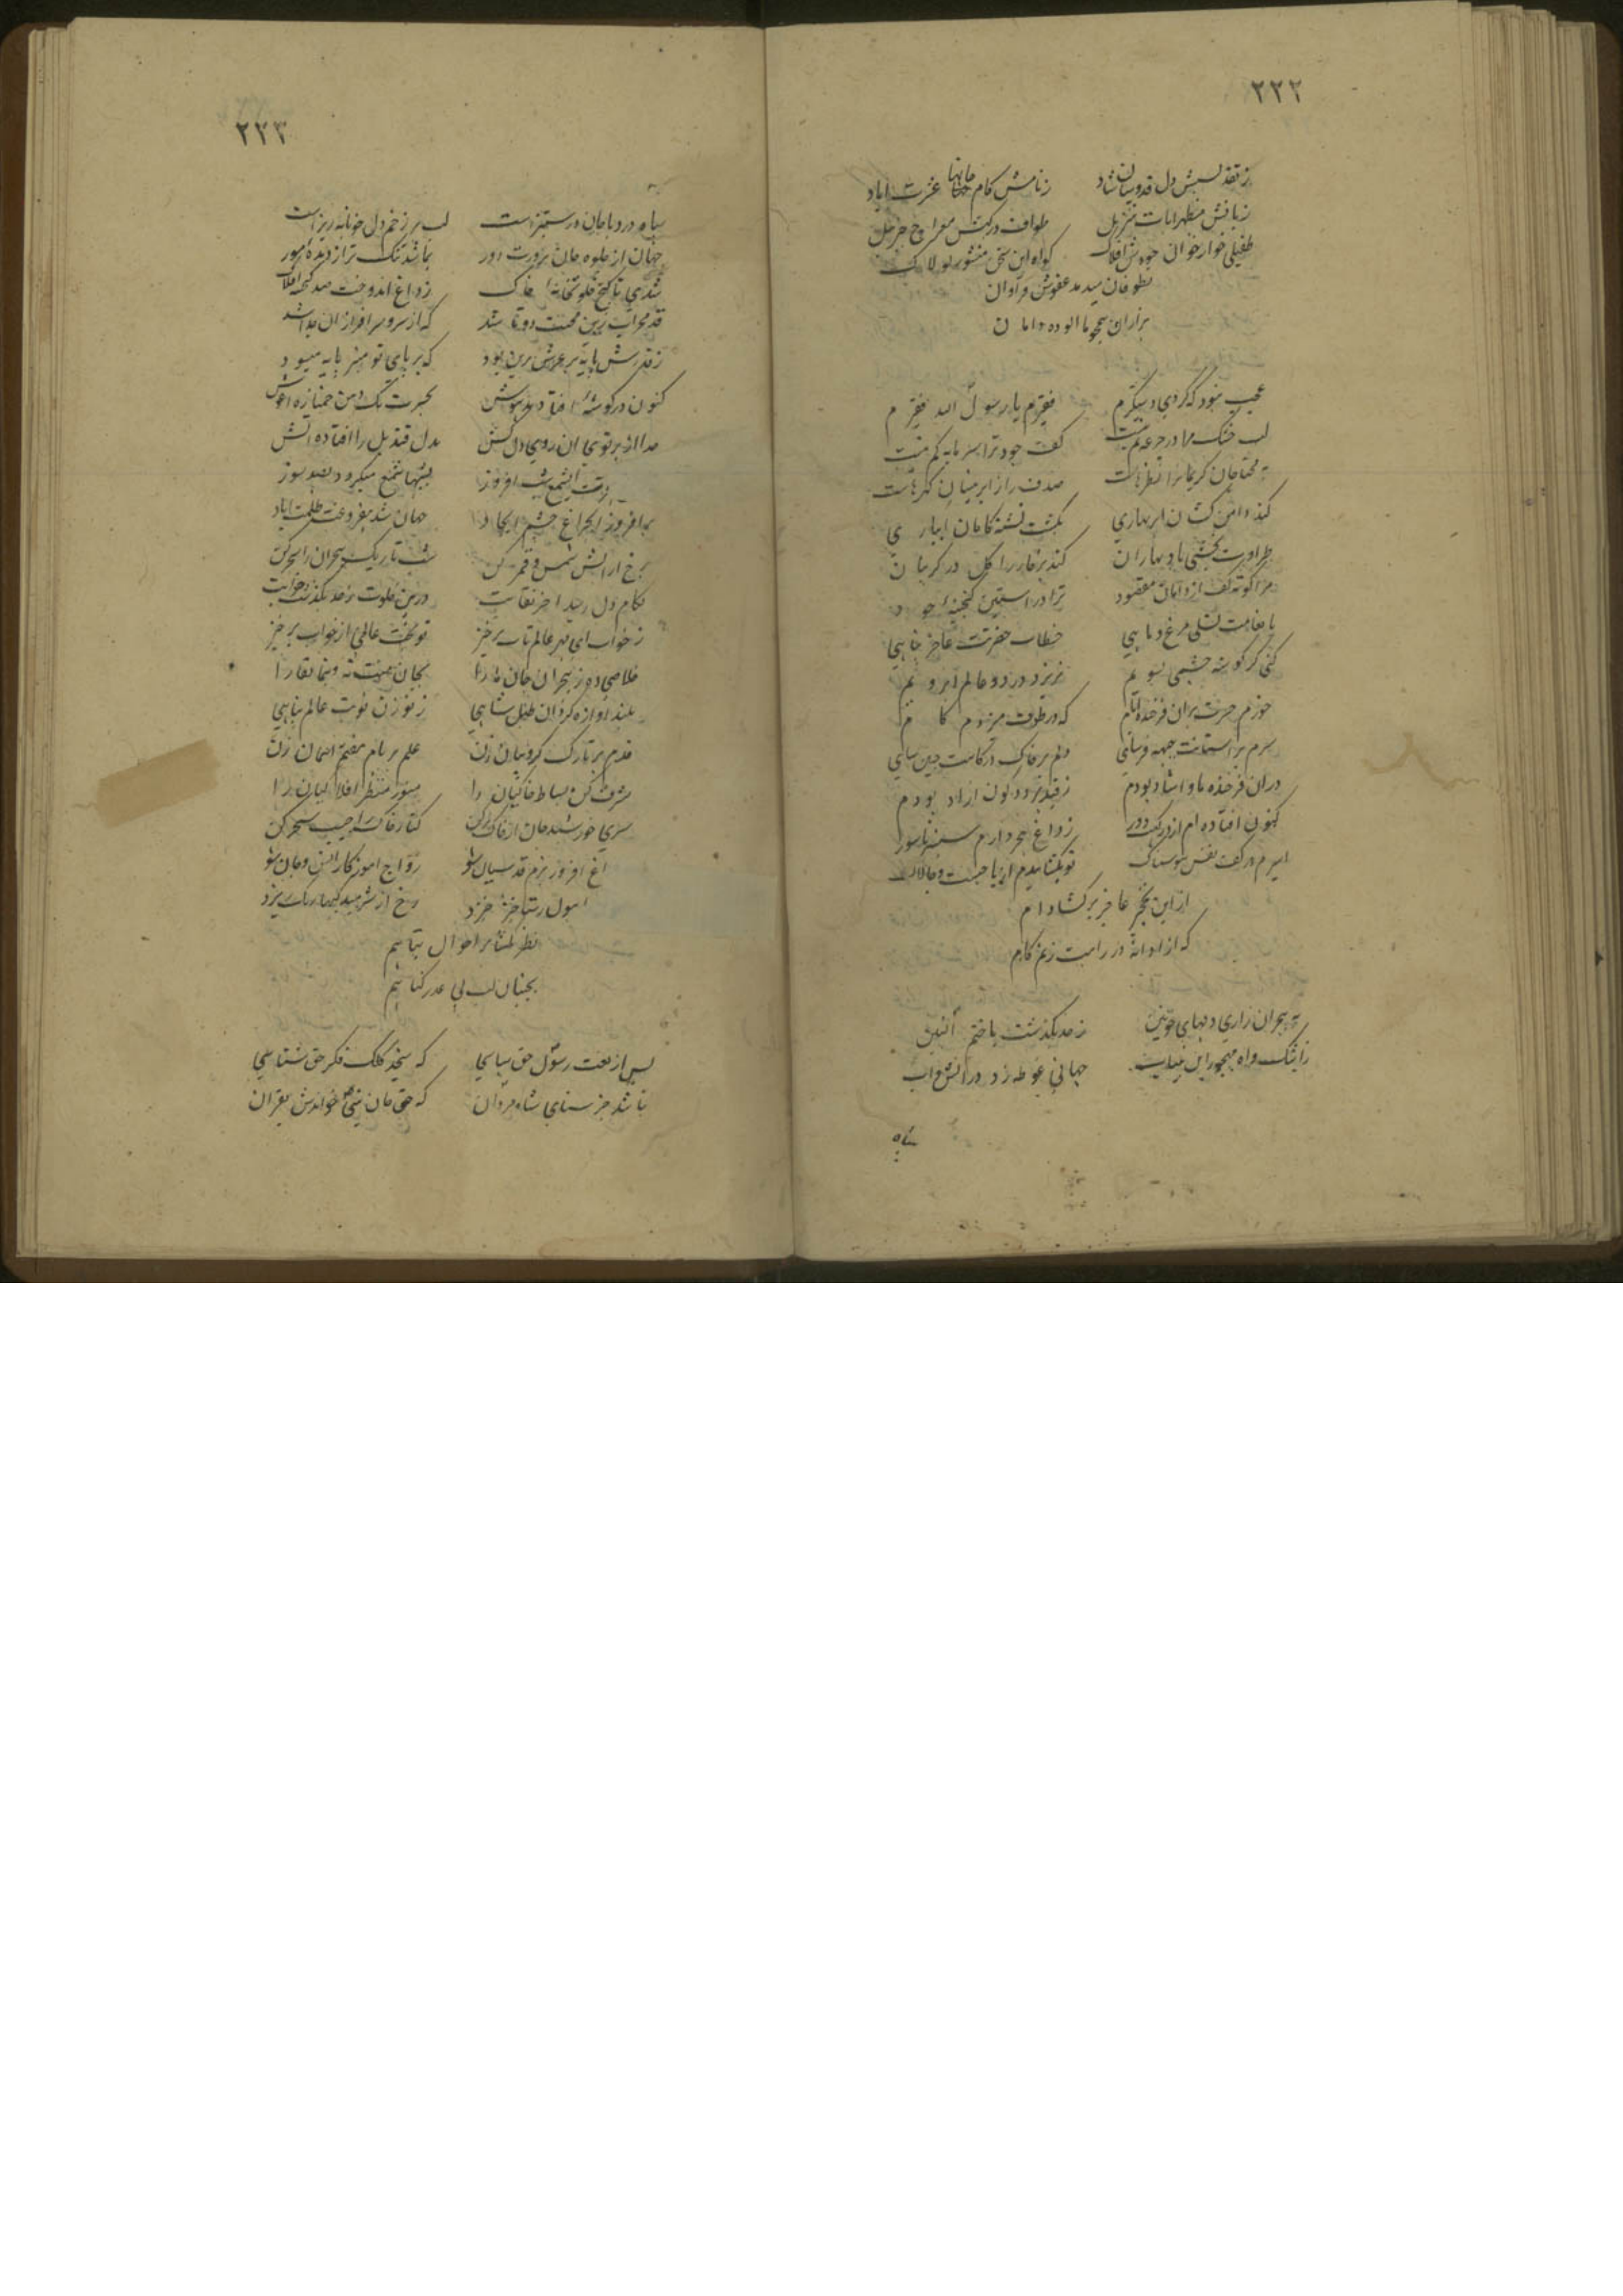 ۲۲۲
ز تقدیسش دل قدوسیان شاد زنامش کام جانها عشرت اباد
زبانش مظهر ایات تنزیل طواف درکهش معراج جبرییل
طفیلی خوار خوان جودش افلاک کواه این سخن منشور لولاک
بطوفان میدهد عفوش فراوان
هزاران همچو ما الوده دامان
عجب نبود که کردی دستکیرم فقیرم یا رسول الله فقیرم
لب خشک مرا در جرعه نم نیست کف جود ترا سرمایه کم نیست
به محتاجان کریمانرا نظرهاست صدف را از ابر نیسان کهرهاست
کند دامن کشان ابر بهاری بکشت تشنه کامان ابیاری
طراوت بخشی باد بهاران کند هر خار را کل در کریبان
مرا کوته کف از دامان مقصود ترا در استین کنجینه جود
با نعامت تسلی مرغ و ماهی خطاب حضرتت عاجز پناهی
کنی کر کوشه چشمی بسویم نریزد در دو عالم ابرویم
خورم حسرت بران فرخنده ایام که در طوف حریمت میزدم کام
سرم بر استانت جبهه فرسای دلم بر خاک درکاهت جبین سای
دران فرخنده ماوا شاد بودم ز قید هر دو کون ازاد بودم
کنون افتاده ام از درکهت دور ز داغ هجر دارم سینه ناسور
اسیرم در کف نفس هوسناک تو بکشا بندم از پا چست و چالاک
ازین نخجیر عاجز برکشا دام
که ازادانه در راهت زنم کام
ز هجران زاری دلهای خونین ز حد بکذشت یا ختم النبیین
ز اشک و اه مهجوران بیتاب جهانی غوطه زد در اتش و اب
سپاه
۲۲۳
سپاه درد با جان در ستیز است لب هر زخم دل خونابه ریز است
جهان از جلوه جان پرورت دور بما شد تنک تر از دیده مور
شدی تا کنج خلوتخانه خاک ز داغ اندوخت صد کنجینه افلاک
قد محراب زین محنت دوتا شد که از سرو سرافرازان جدا شد
ز قدرش پایه بر عرش برین بود که بر پای تو منبر پایه میسود
کنون در کوشه افتاده مدهوش بحسرت یک دهن خمیازه اغوش
جدا از پرتوی ان روی دلکش بدل قندیل را افتاده اتش
شب افروز بشبها شمع میکرید بصد سوز
برافروز ای چراغ چشم ایجاد جهان شد بیفروغت ظلمت اباد
رخ ارایش شمس و قمر کن شب تاریک هجران را سحر کن
بکام دل رسید اخر نقابت درین خلوت ز حد بکذشت خوابت
ز خواب ای مهر عالمتاب برخیز تو بخت عالمی از خواب برخیز
خلاصی ده ز هجران جان ما را بجان منت نه و بنما لقا را
بلند اوازه کردان طبل شاهی ز نو زن نوبت عالم پناهی
قدم بر تارک کروبیان زن علم بر بام هفتم اسمان زن
مشرف کن بساط خاکیان را منور منظر افلاکیان را
سری خورشید سان از خاک برکن کنار خاک را جیب سحر کن
چراغ افروز بزم قدسیان شو رواج اموز کار انس و جان شو
رخ از شرمندکیها رنک ریزد
نظر بکشا بر احوال تباهم
بجنبان لب پی عذر کناهم
پس از نعت رسول حق سپاسی که سنجد کلک فکر حق شناسی
نباشد جز ثنای شاه مردان که حق جان نبی خواندش بقران